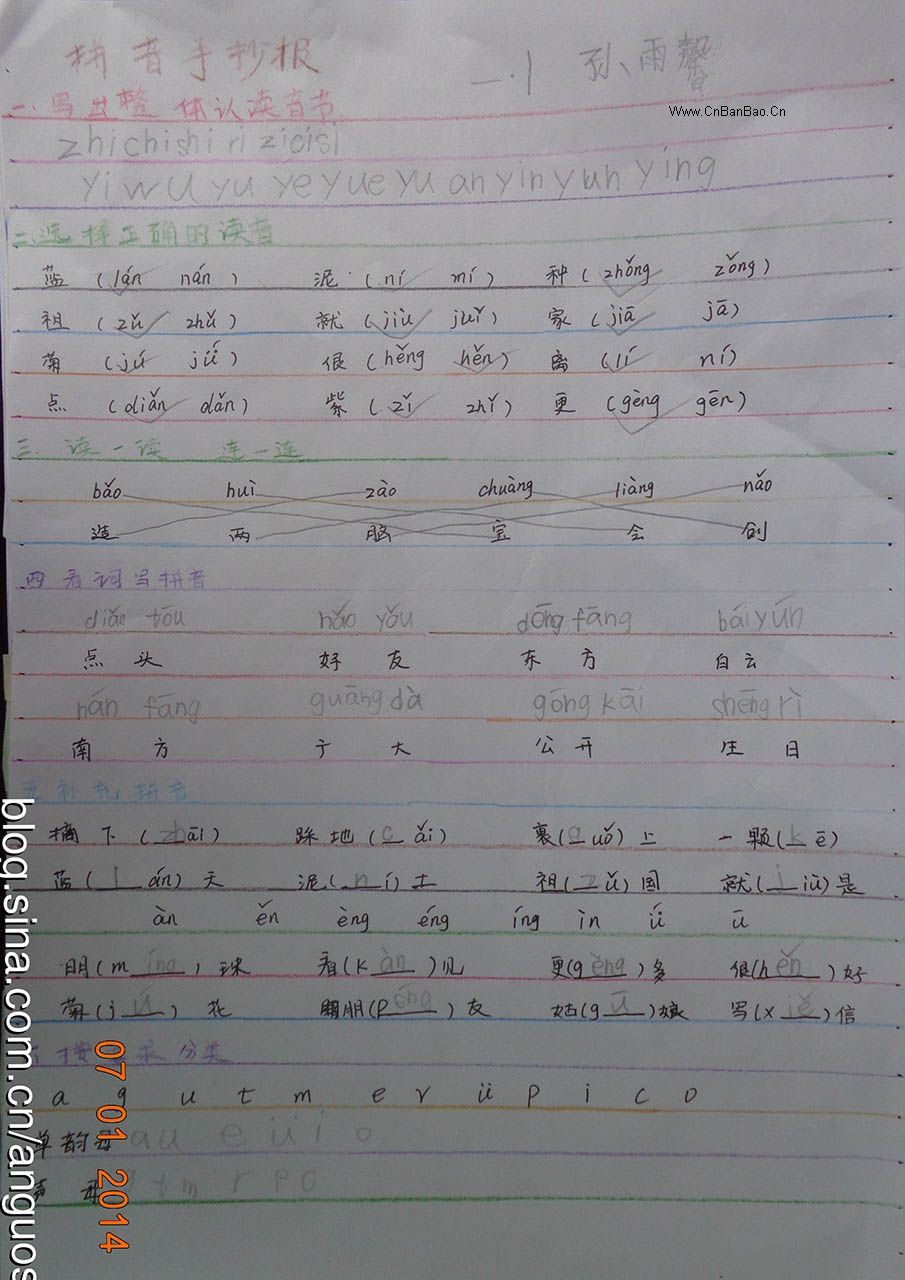 拼音手抄报 一.1 孙雨馨
www.CnBanBao.Cn
一.写出整体认读音节
zhi chi shi ri zi ci si
yi wu yu ye yue yuan yin yun ying
二.选择正确的读音
蓝 (lán nán) 泥 (ní mí) 种 (zhǒng zǒng)
祖 (zǔ zhǔ) 就 (jiù juǐ) 家 (jiā jā)
菊 (jú jǘ) 很 (hěng hěn) 离 (lí ní)
点 (diǎn dǎn) 紫 (zǐ zhǐ) 更 (gèng gēn)
三. 读一读 连一连
bǎo huì zào chuàng liàng nǎo
造 两 脑 宝 会 创
四 看词写拼音
diǎn tōu hǎo yǒu dōng fāng bái yún
点 头 好 友 东 方 白云
nán fāng guāng dà gōng kāi shēng rì
南 方 广 大 公 开 生 日
五 补充拼音
摘下 (zhāi) 踩地 (cǎi) 裹(guǒ)上 一颗(kē)
蓝 (lán) 天 泥(ní)土 祖(zǔ)国 就(jiù)是
àn ěn èng éng íng ìn ǘ ū
明 (míng) 珠 看(kàn)见 更(gèng)多 很(hěn)好
菊(jú) 花 朋(péng)友 姑(gū)娘 写(xiě)信
六 按要求分类
a g u t m e r ü p i c o
单韵母 a u e ü i o
声 母 t m r p c
blog.sina.com.cn/anguos
07 01 2014